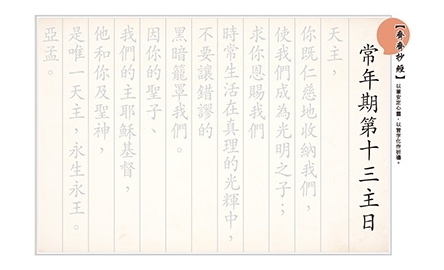 【齊齊抄經】
以筆安定心靈,以寫字化作祈禱。
常年期第十三主日
天主,
你既仁慈地收納我們,
使我們成為光明之子;
求你恩賜我們
時常生活在真理的光輝中,
不要讓錯謬的
黑暗籠罩我們。
因你的聖子、
我們的主耶穌基督,
他和你及聖神,
是唯一天主,永生永王。
亞孟。